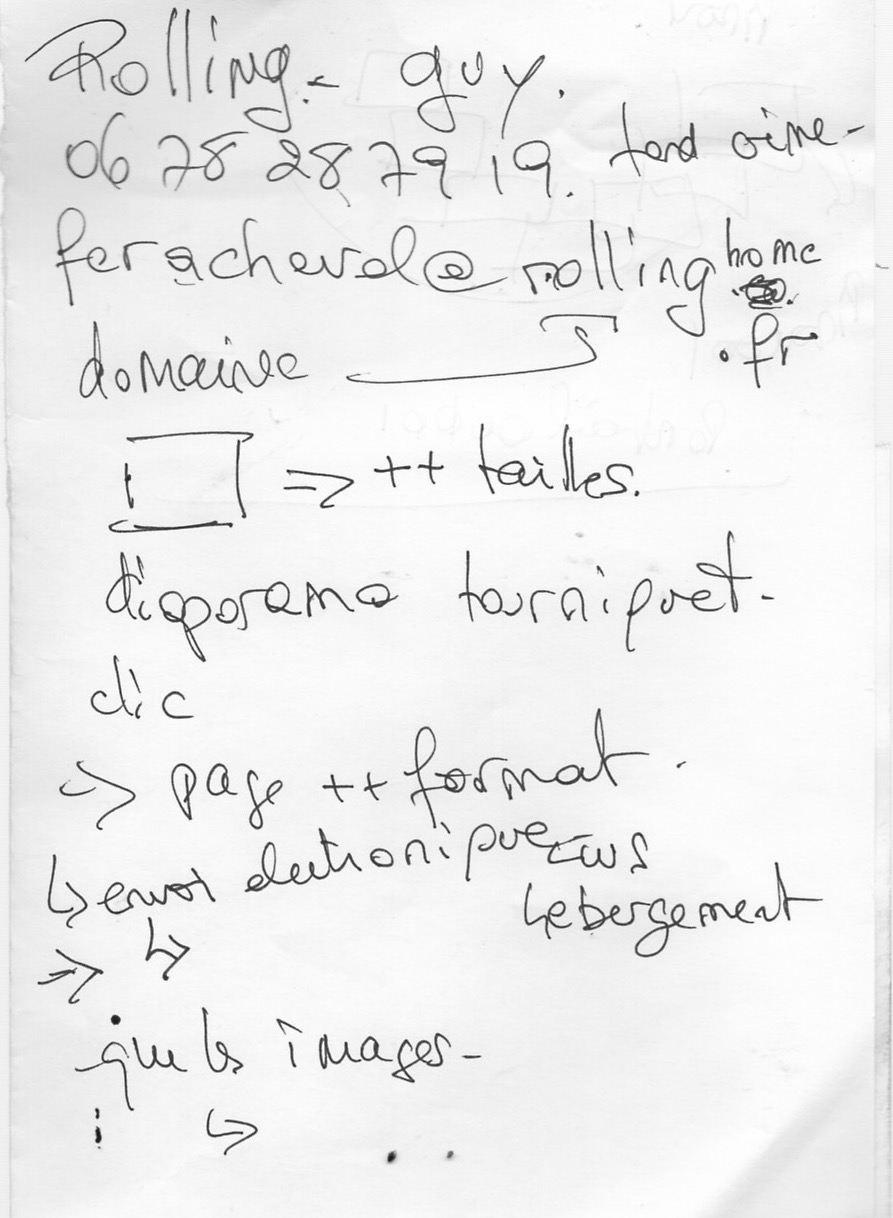 Rolling - guy.
06 78 28 79 19. fond
feracheval@rollinghome
.fr
domaine
=> ++ tailles.
diaporama tourniquet -
clic
-> page ++ format.
↳ envoi électronique
hébergement
=> ↳
que les images -
↳